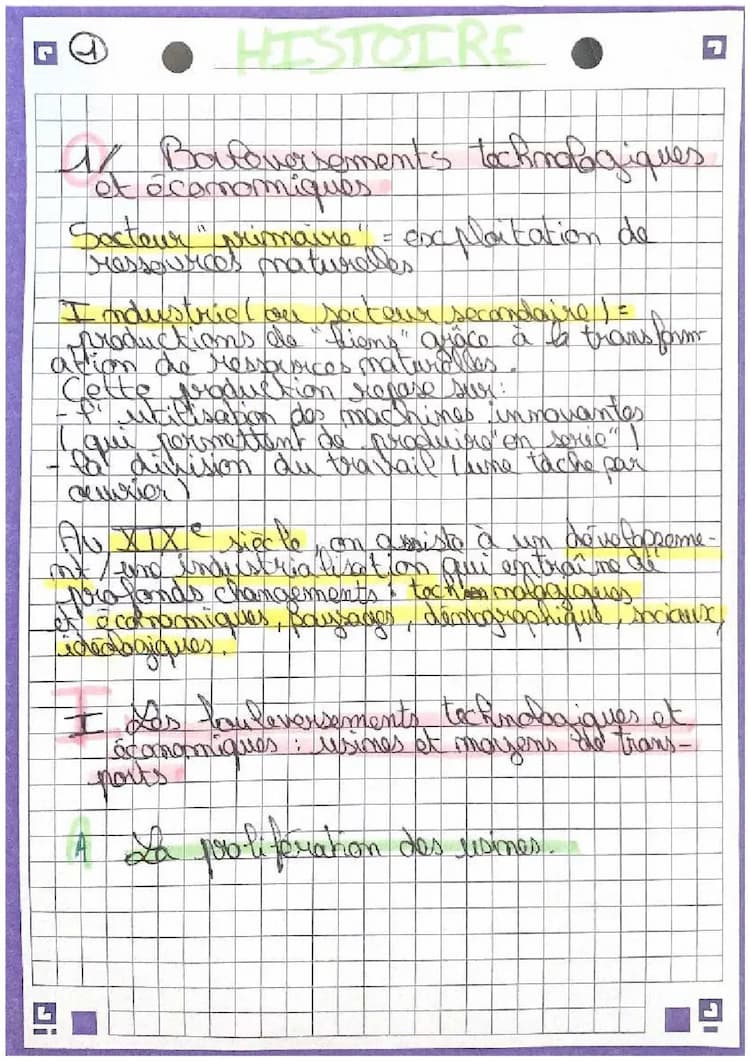 1
HISTOIRE
1/ Bouloversements technologiques
et économiques
Secteur "primaire" = exploitation de
ressources naturelles
Industrie (ou secteur secondaire) =
productions de "biens" grâce à la transform-
ation de ressources naturelles.
Cette production repose sur:
- l'utilisation des machines innovantes
(qui permettent de produire "en série")
- la division du travail (une tâche par
ouvrier)
Au XIXe siècle, on assiste à un développeme-
nt / une industrialisation qui entraîne de
profonds changements : technologiques
et économiques, paysages, démographique, sociaux,
idéologiques.
I Les bouleversements technologiques et
économiques : usines et moyens de trans-
ports
A La prolifération des usines.